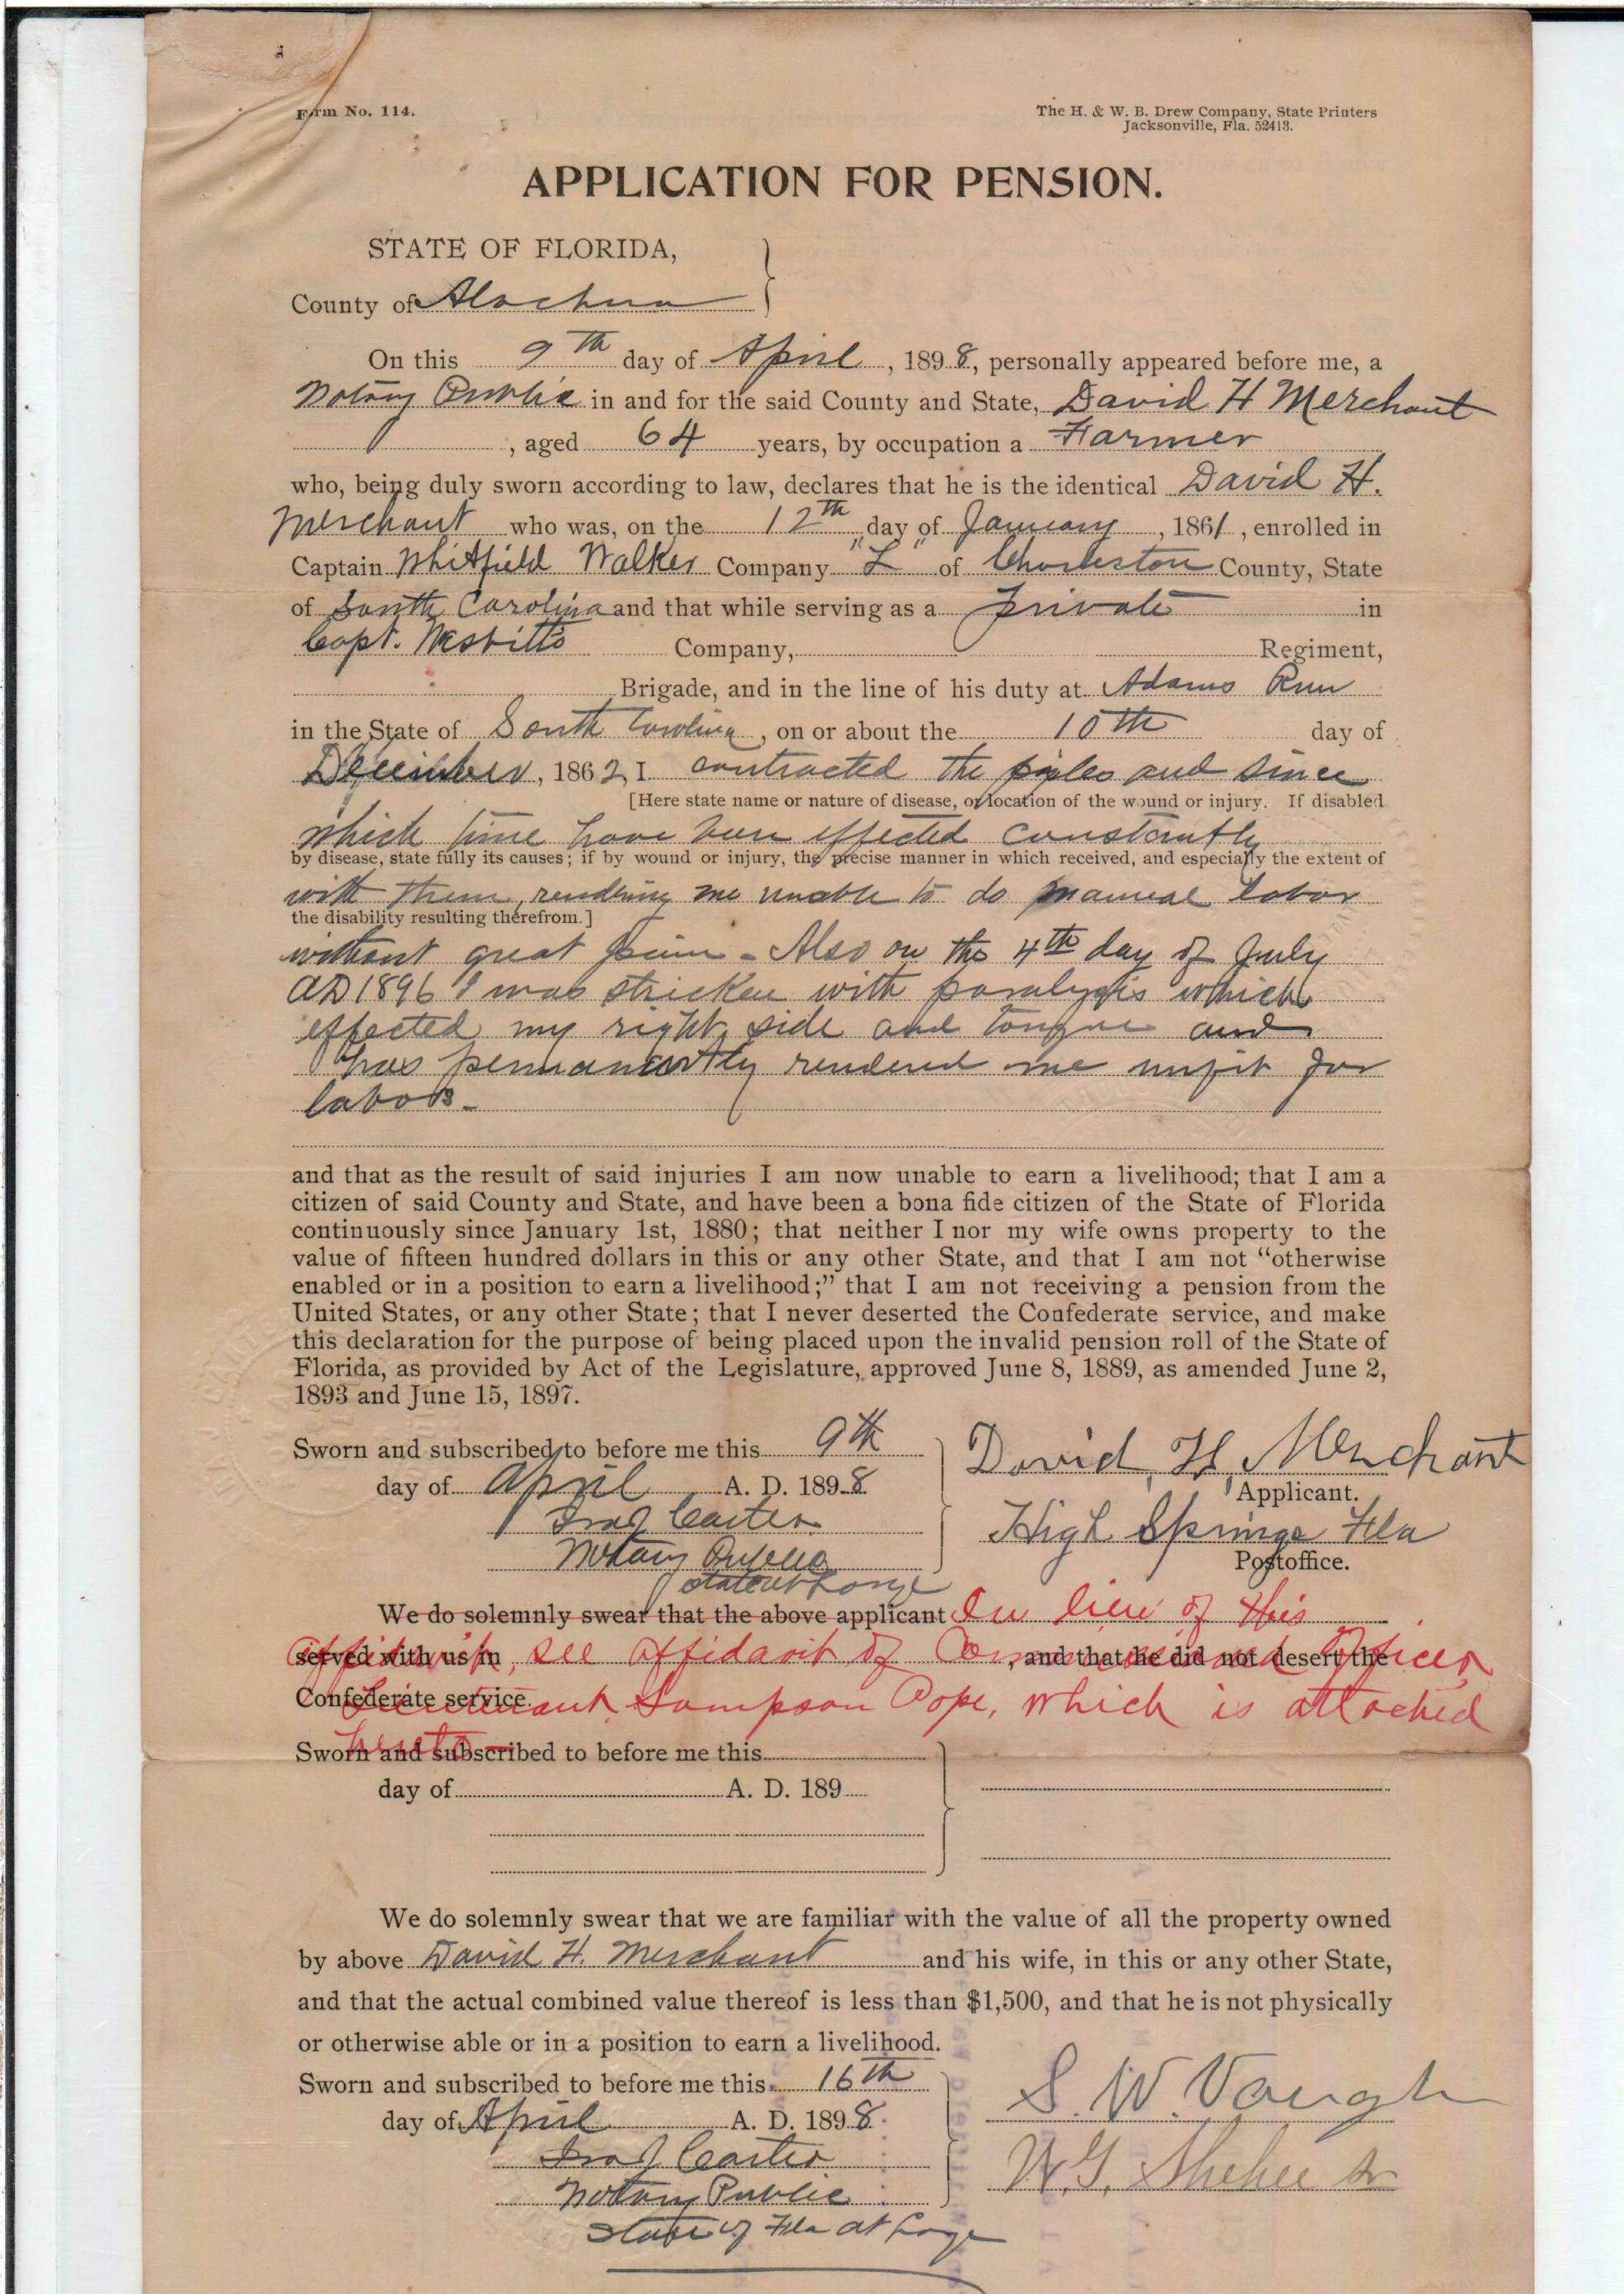 Form No. 114.
The H. & W. B. Drew Company, State Printers
Jacksonville, Fla. 52413.
APPLICATION FOR PENSION.
STATE OF FLORIDA,
County of Alachua
On this 9th day of April, 1898, personally appeared before me, a
Notary Public in and for the said County and State, David H Merchant
, aged 64 years, by occupation a Farmer
who, being duly sworn according to law, declares that he is the identical David H.
Merchant who was, on the 12th day of January, 1861, enrolled in
Captain Whitfield Walker Company "L" of Charleston County, State
of South Carolina and that while serving as a private in
Capt. Nesbitts Company, Regiment,
Brigade, and in the line of his duty at Adams Run
in the State of South Carolina, on or about the 10th day of
December, 1862, I contracted the piples and since
[Here state name or nature of disease, or location of the wound or injury. If disabled
which time have been effected constantly
by disease, state fully its causes; if by wound or injury, the precise manner in which received, and especially the extent of
with them, rendering me unable to do manual labor
the disability resulting therefrom.]
without great pain - Also on the 4th day of July
AD 1896 I was stricken with paralysis which
effected my right side and tongue and
has permanently rendered me unfit for
labor.
and that as the result of said injuries I am now unable to earn a livelihood; that I am a
citizen of said County and State, and have been a bona fide citizen of the State of Florida
continuously since January 1st, 1880; that neither I nor my wife owns property to the
value of fifteen hundred dollars in this or any other State, and that I am not "otherwise
enabled or in a position to earn a livelihood;" that I am not receiving a pension from the
United States, or any other State; that I never deserted the Confederate service, and make
this declaration for the purpose of being placed upon the invalid pension roll of the State of
Florida, as provided by Act of the Legislature, approved June 8, 1889, as amended June 2,
1893 and June 15, 1897.
Sworn and subscribed to before me this 9th
day of April A. D. 1898
Ira J Carter
Notary Public
State at Large
David H Merchant
Applicant.
High Springs Fla
Postoffice.
We do solemnly swear that the above applicant In lieu of this
served with us in, and that he did not desert the
affidavit, see affidavit of Commissioned Officer
Confederate service.
Lieutenant Sampson Pope, which is attached
hereto -
Sworn and subscribed to before me this
day of A. D. 189
We do solemnly swear that we are familiar with the value of all the property owned
by above David H. Merchant and his wife, in this or any other State,
and that the actual combined value thereof is less than $1,500, and that he is not physically
or otherwise able or in a position to earn a livelihood.
Sworn and subscribed to before me this 16th
day of April A. D. 1898
Ira J Carter
Notary Public
State of Fla at Large
S. W. Vaugh
W. G. Shehee Sr